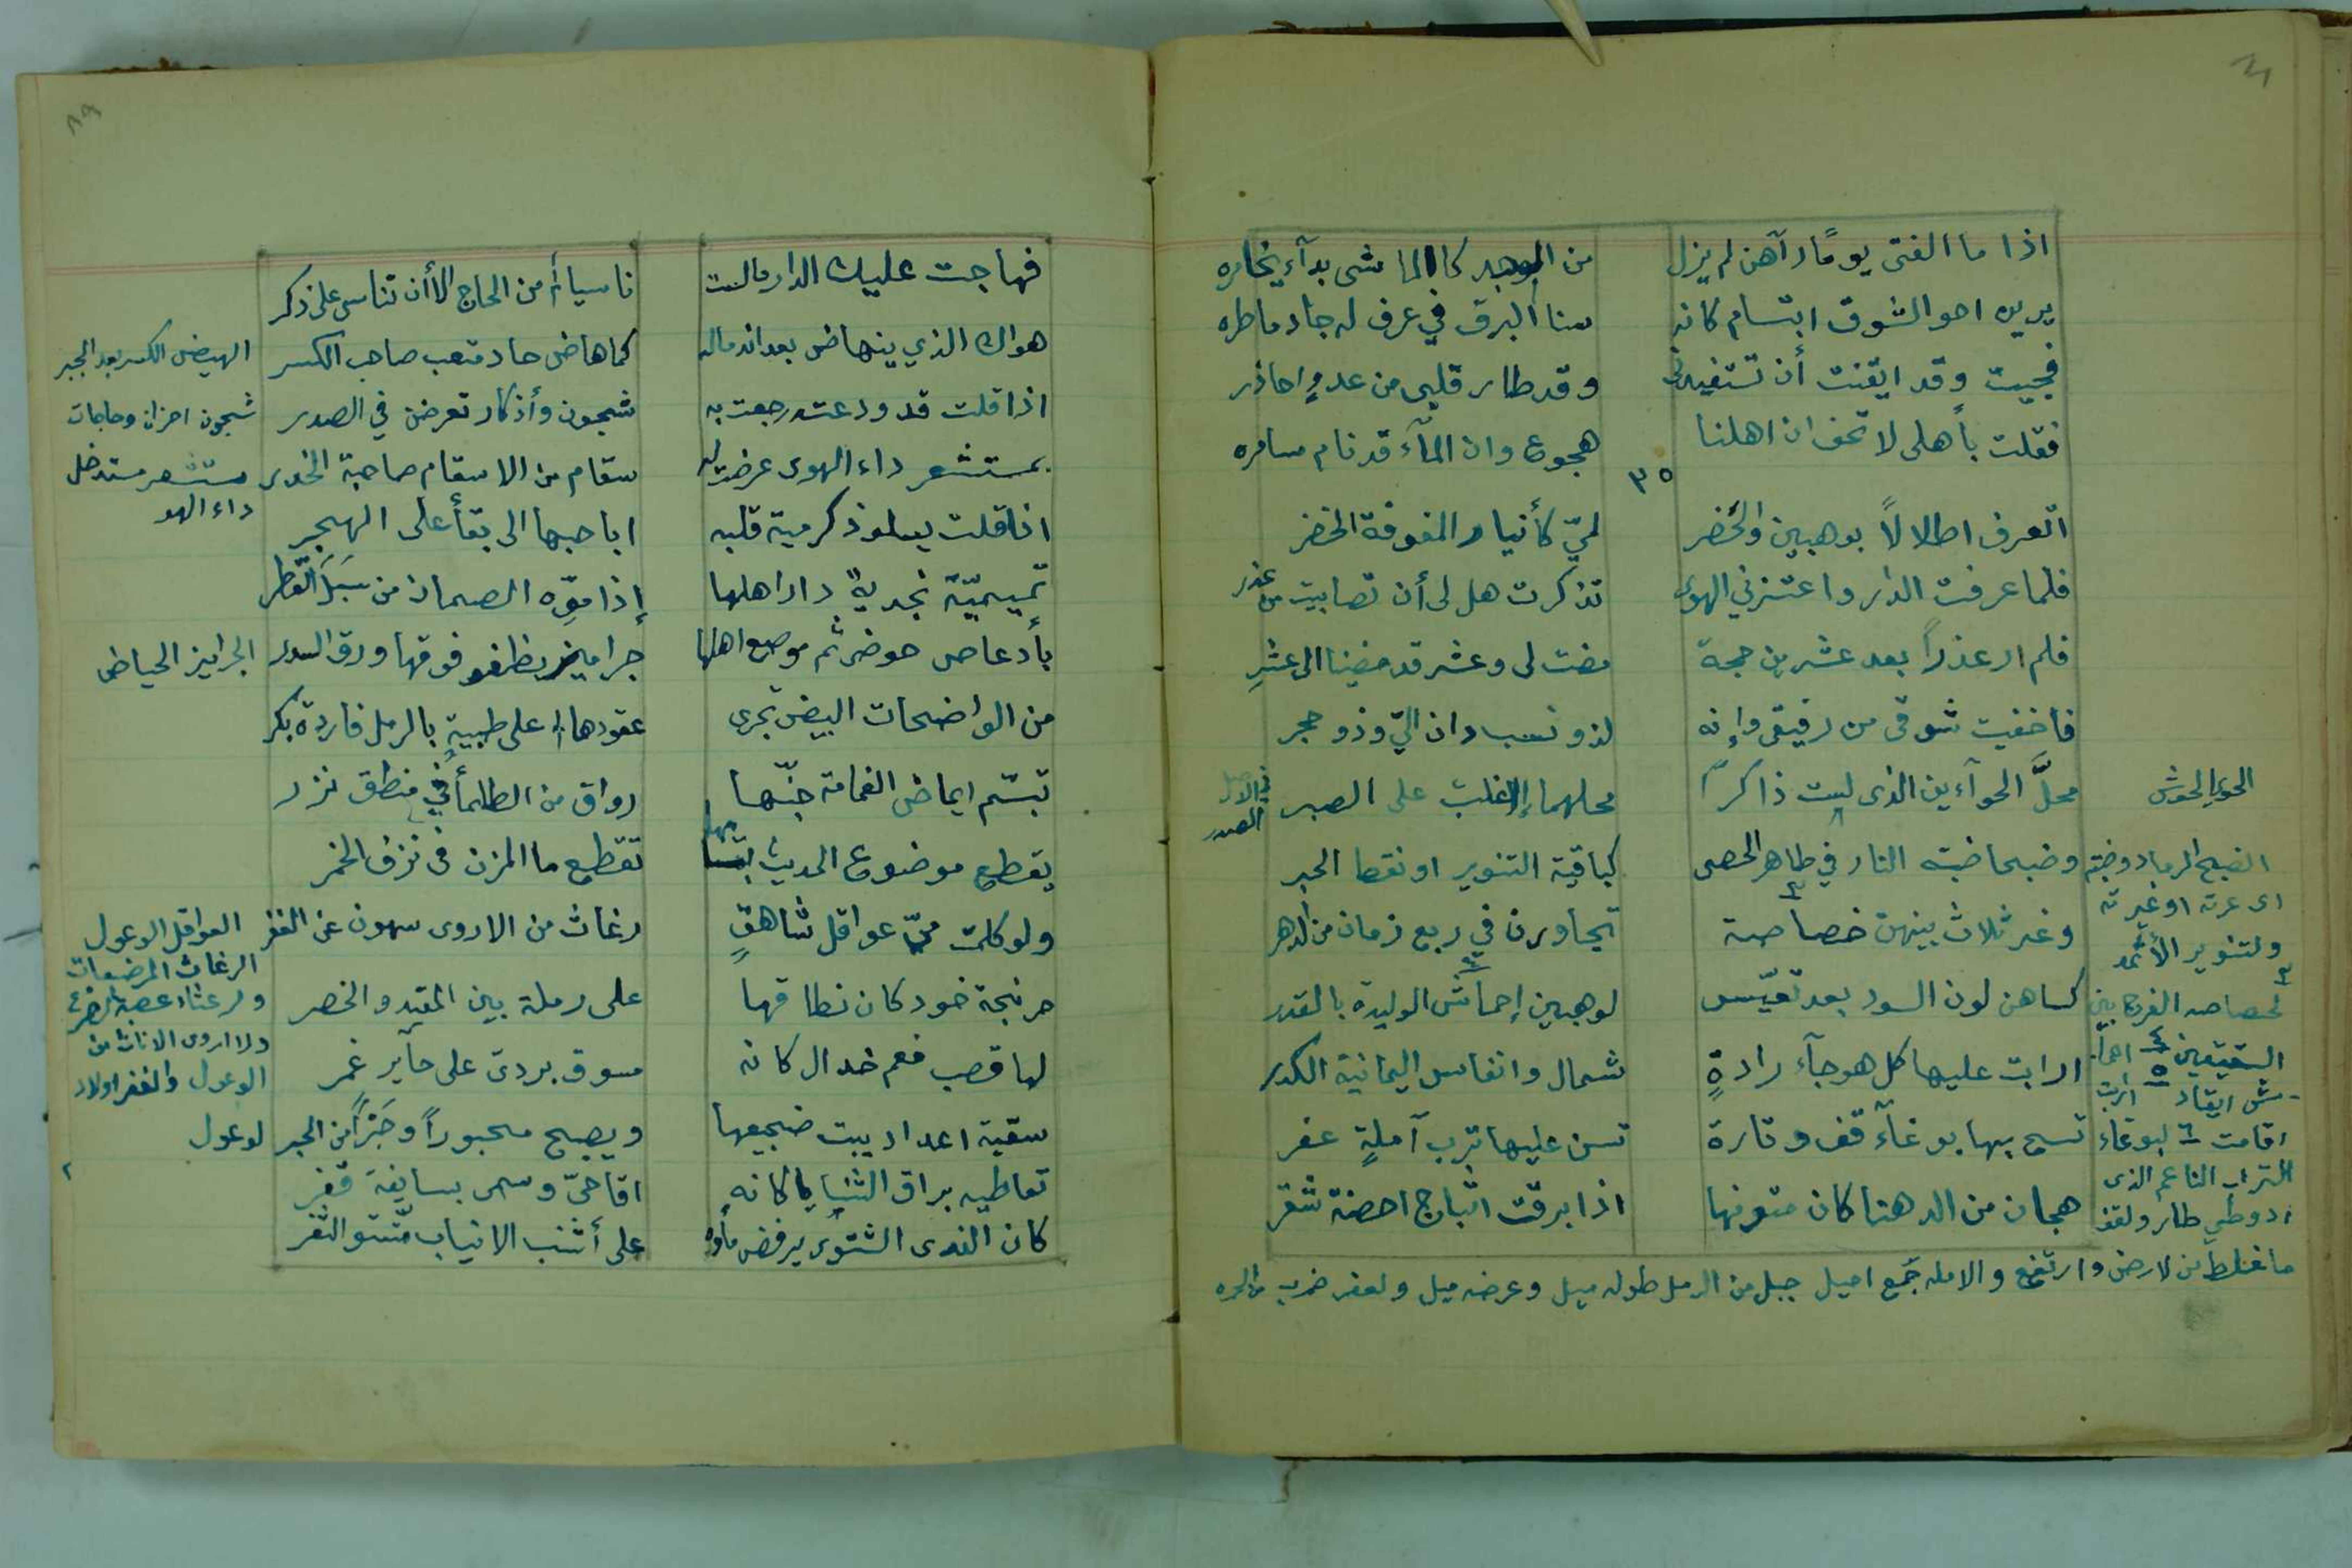 اذا ما الفتى يومًا رآهن لم يزل من الوجد كالماشى بدآء يخامره
يرين اخو الشوق ابتسام كانه سنا البرق في عرف له جاد ماطره
فجيت وقد ايقنت أن تستفيدنى وقد طار قلبى من عدوٍ احاذر
فقلت بأهلى لا تخف ان اهلنا هجوع وان المآء قد نام سامره
٣٥
اتعرف اطلالاً بوهبين والحضر لميّ كأنيار المفوفة الخضر
فلما عرفت الدار واعتزني الهوى تذكرت هل لى أن تصابيت من عذر
فلم ار عذراً بعد عشرين حجة مضت لى وعشر قد مضينا الى عشرِ
فاخفيت شوقى من رفيقى وإنه لذو نسب دان اليّ وذو حجر
محلَّ الحوآءين الذى لست ذاكراً محلهما إلا غلبت على الصبر
في الاصل الصدر
الحوي الحوش
وضبحا ضبته النار في ظاهر الحصى كباقية التنوير او نقط الحبر
وغبر ثلاث بينهن خصاصة تجاورن في ربع زمان من الدهر
كساهن لون السود بعد تعيّس لوهبين إحماش الوليدة بالقدر
ارابت عليها كل هوجآء رادةٍ شمال وانفاس اليمانية الكدر
تسح بها بوغآء قف وتارة تسن عليها ترب آملةٍ عفر
هجان من الدهنا كان متونها اذا برقت اثباج احصنة شقر
الضبح الرماد وضبته
اى غرته او غيرته
ولتنوير الأثمد
لخصاصه الفرجا بين
الشيئين احما
ش ايقاد اربت
اقامت لبوغاء
التراب الناعم الذى
اذ وطي طار ولقف
ما غلط من لارض وارتفع والامله جمع اميل جبل من الرمل طوله ميل وعرضه ميل ولعفر ضرب من الحره
٨٩
فهاجت عليك الدار مالست ناسيا من الحاج الا أن تناسى على ذكر
هواك الذي ينهاض بعد اندماله كما هاض حاد متعب صاحب الكسر
اذا قلت قد ودعته رجعت به شجون وأذكار تعرضن في الصدر
بمستشعر داء الهوى عرضت له سقام من الاسقام صاحبة الخدر
اذا قلت يسلو ذكر مية قلبه ابا حبها الى بقأ على الهجر
تميميّة نجدية دار اهلها إذا موّه الصمان من سَبَل القطر
بأدعاص حوضى ثم موضع اهلها جراميز يطفو فوقها ورق السدر
من الواضحات البيض تجرى عقودها على ظبيةٍ بالرمل فاردة بكر
تبسّم ايماض الغمامة جنّها رواق من الظلمأ في منطق نزر
يقطع موضوع الحديث ابتسامها تقطع ما المزن فى نزف الخمر
ولو كلمت ميّ عواقل شاهقٍ رغاث من الاروى سهون عن الغفر
خرنجة خود كان نطاقها على رملة بين المقيد والخصر
لها قصب فعم خدال كانه مسوق بردي على حآير غمر
سقية اعداد يبيت ضجيعها ويصبح محبوراً وخيْراً من الحبر
تعاطيه براق الثنايا كانه اقاحىّ وسمى بسايفة قفر
كان الندى الشتوى يرفض مأوه على أشنب الانياب متسق الثغر
الهيض الكسر بعد الجبر
شجون احزان وحاجات
مستشعر مستدخل
داء الهو
الجراميز الحياض
العواقل الوعول
الرغاث المرضعات
ولرغثاء عصبة الضرع
ولااروى الاناث من
الوعول والغفر اولاد
لوعول